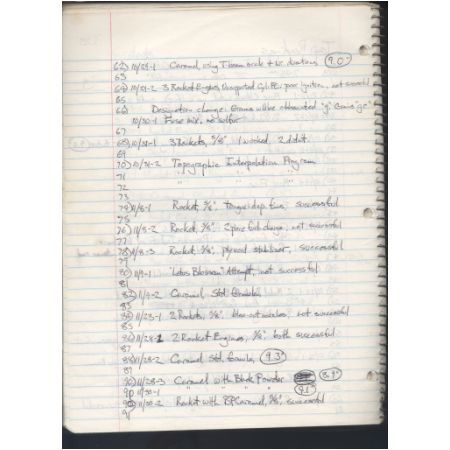 62) 10/29-1 Caramel, using Triple beam scale + durations 9.0"
63
64) 10/29-2 3 Rocket Engines, Unsupported Cyl. FE, poor ignition, not successful
65
66) Designation change: Grams will be abbreviated "g" Grams "gr"
10/30-1 Fuse mix, no sulfur
67
68) 10/31-1 3 Rockets, 5/8" 1 worked 2 didn't
69
70) 10/31-2 Topographic Interpolation Program
71 " " "
72
73
74) 11/8-1 Rocket, 5/8" successful
75
76) 11/8-2 Rocket, 5/8" 2 piece fuel charge, not successful
77
78) 11/8-3 Rocket, 5/8", plywood stabilizer, successful
79
80) 11/9-1 "Lotus Blossom" Attempt, not successful
81
82) 11/9-2 Caramel, Std.
83
84) 11/23-1 2 Rockets, 5/8" not successful
85
86) 11/28-1 2 Rocket Engines, 5/8" both successful
87
88) 11/28-2 Caramel Std. formula, 9.3"
89
90) 11/28-3 Caramel with Black Powder 8.9"
11/30-1 " " " 9.1"
11/30-2 Rocket with BP Caramel, 5/8", successful